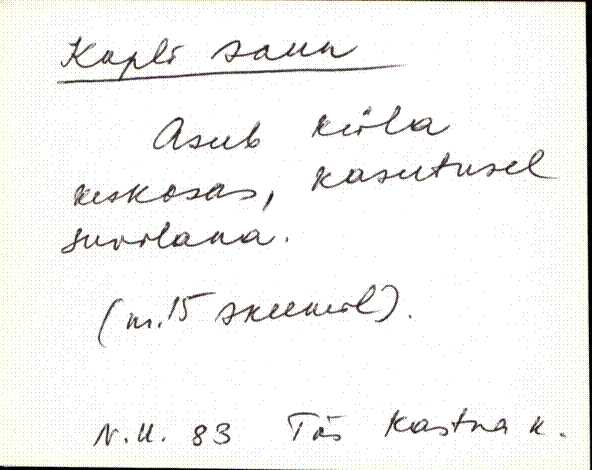 Kapli saun
Asub küla
keskosas, kasutusel
suvilana.
(nr. 15 skeemil).
N.U. 83 Tõs Kastna k.